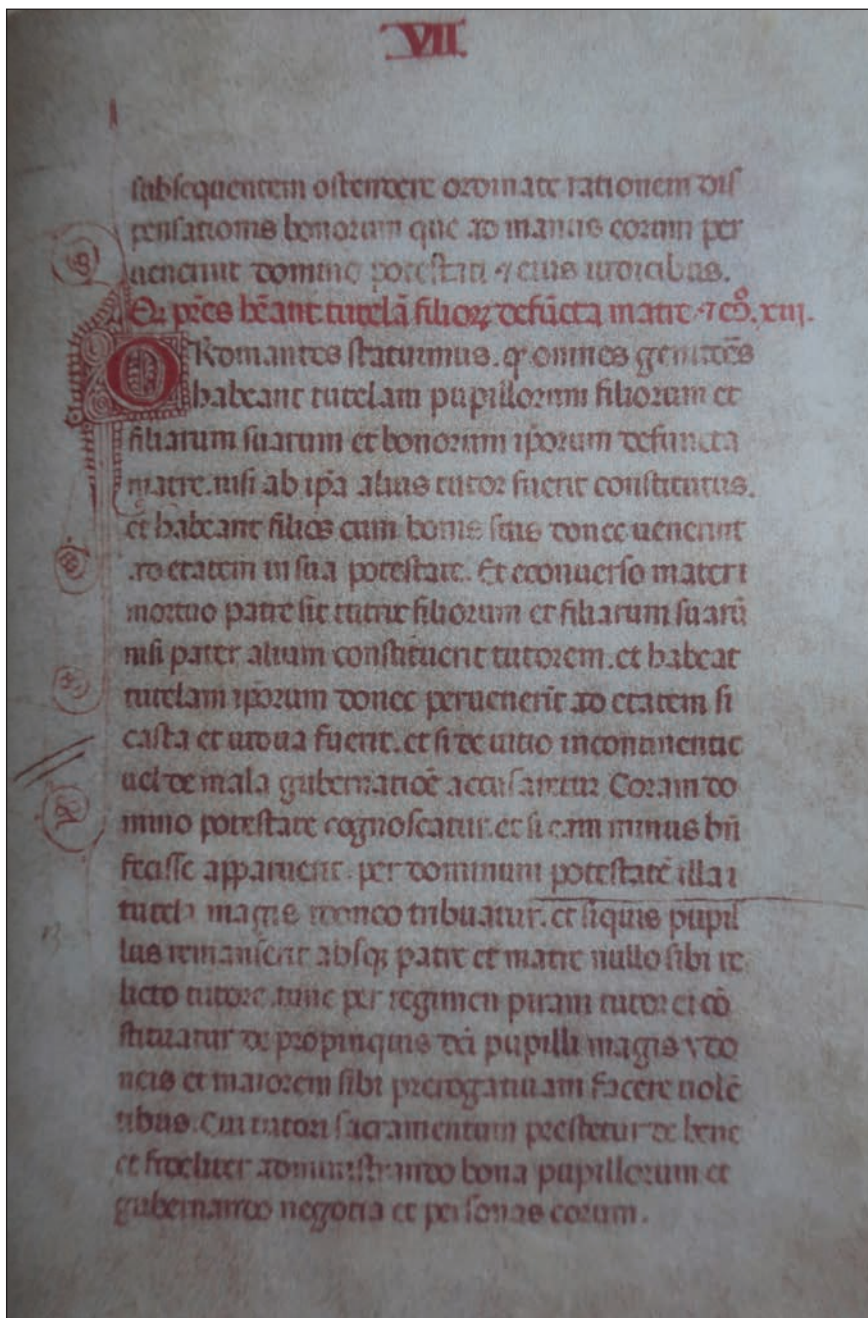 VII
subsequentem ostendere ordinate rationem dis
pensationis bonorum que ad manus eorum per
uenerint domino potestati ⁊ eius iudicibus.
Qđ pr̃es hẽant tutelã filioꝝ defũcta matre ⁊ cõ. xiii.
ORdinantes statuimus. ꝙ omnes genitores
habeant tutelam pupillorum filiorum et
filiarum suarum et bonorum ip̃orum defuncta
matre. nisi ab ip̃a alius tutor fuerit constitutus.
et habeant filios cum bonis suis donec uenerint
ad etatem in sua potestate. Et econuerso mater
mortuo patre sit tutrix filiorum et filiarum suarũ
nisi pater alium constituerit tutorem. et habeat
tutelam ip̃orum donec peruenerĩt ad etatem si
casta et uidua fuerit. et si de uitio incontinentie
uel de mala gubernatiõe accusaretur Coram do
mino potestate cognoscatur. et si eam minus bñ
fecisse apparuerit. per dominum potestatẽ illa
tutela magis idoneo tribuatur. et siquis pupil
lus remanserit absqꝫ patre et matre nullo sibi re
licto tutore tunc per regimen tutor ei cõ
stituatur de propinquis dc̃i pupilli magis ydo
neis et maiorem sibi prerogatiuam facere uolẽ
tibus. Cui tutori sacramentum prestetur de bene
et fideliter administrando bona pupillorum et
gubernando negotia et personas eorum.